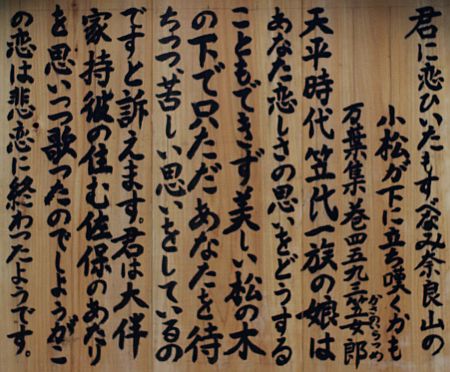 君に恋ひいたもすべなみ奈良山の
小松が下に立ち嘆くかも
万葉集巻四五九三笠女郎
かさのいらつめ
天平時代笠氏一族の娘は
あなた恋しさの思いをどうする
こともできず美しい松の木
の下で只ただあなたを待
ちつつ苦しい思いをしているの
ですと訴えます。君は大伴
家持彼の住む佐保のあたり
を思いつつ歌ったのでしょうがこ
の恋は悲恋に終わったようです。